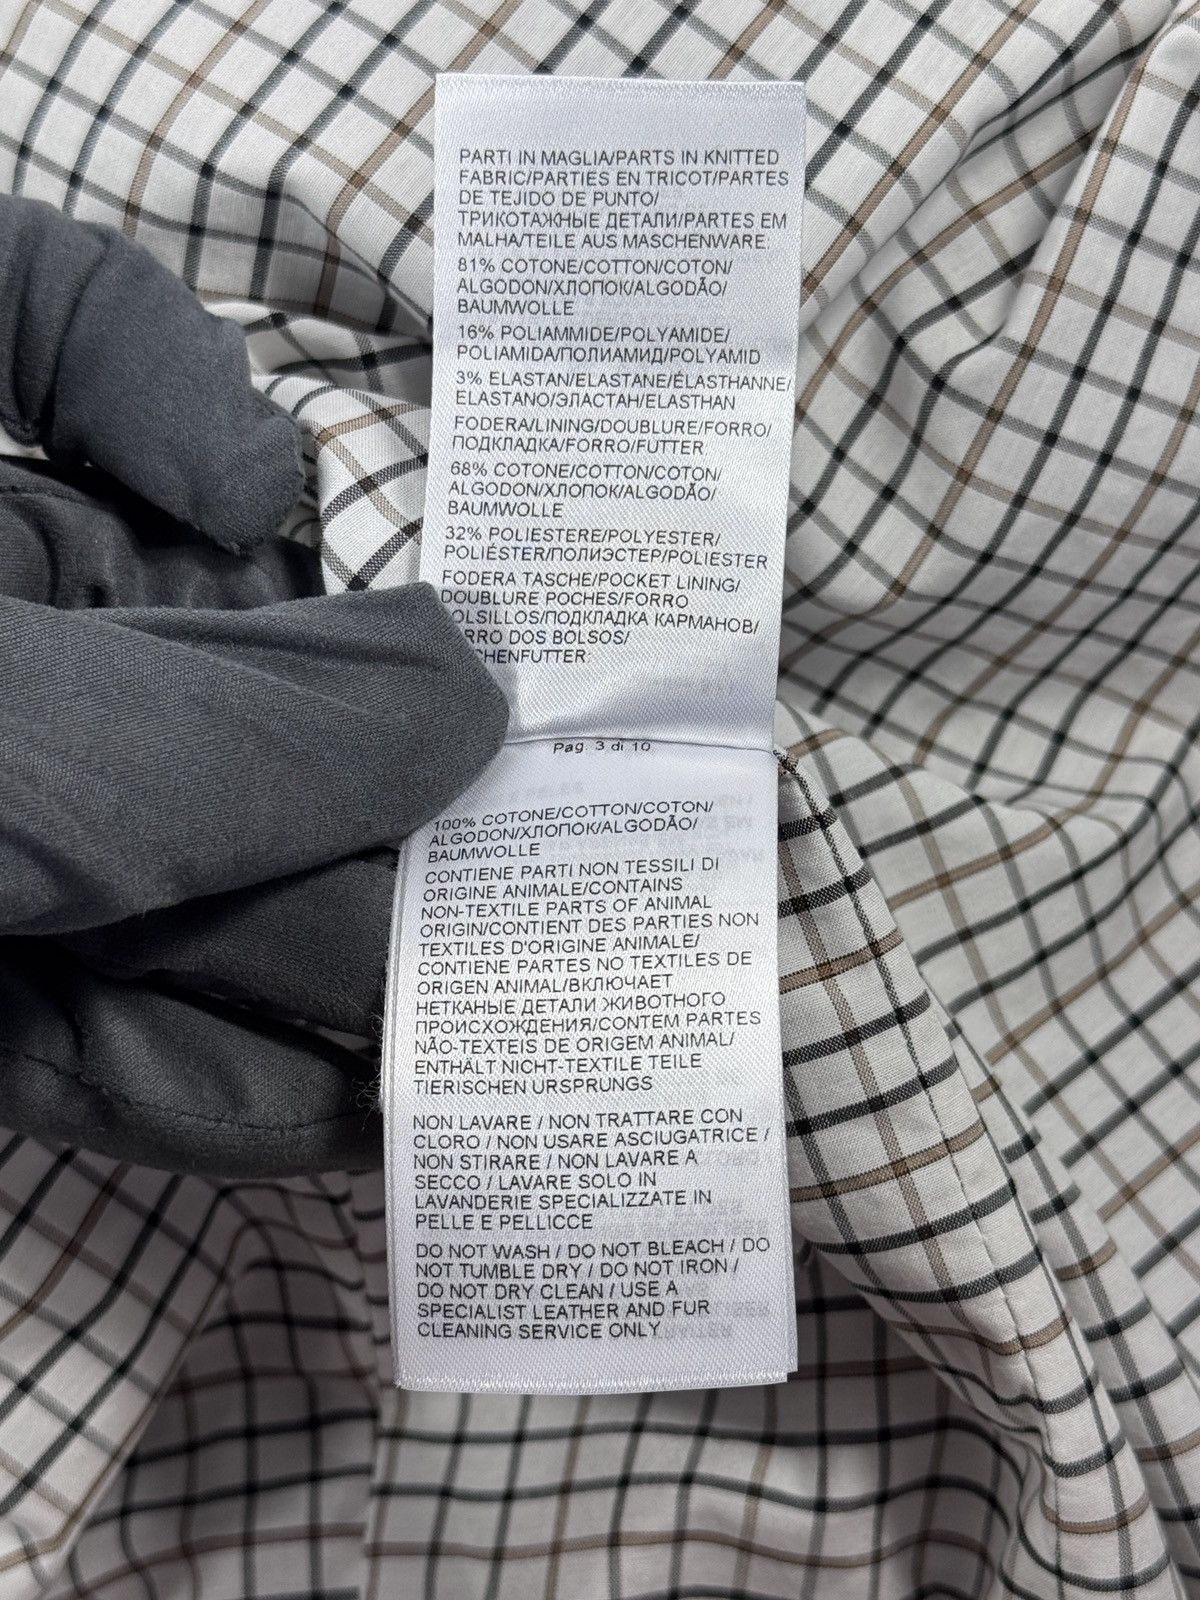 PARTI IN MAGLIA/PARTS IN KNITTED
FABRIC/PARTIES EN TRICOT/PARTES
DE TEJIDO DE PUNTO/
ТРИКОТАЖНЫЕ ДЕТАЛИ/PARTES EM
MALHA/TEILE AUS MASCHENWARE:
81% COTONE/COTTON/COTON/
ALGODON/ХЛОПОК/ALGODÃO/
BAUMWOLLE
16% POLIAMMIDE/POLYAMIDE/
POLIAMIDA/ПОЛИАМИД/POLYAMID
3% ELASTAN/ELASTANE/ÉLASTHANNE/
ELASTANO/ЭЛАСТАН/ELASTHAN
FODERA/LINING/DOUBLURE/FORRO/
ПОДКЛАДКА/FORRO/FUTTER
68% COTONE/COTTON/COTON/
ALGODON/ХЛОПОК/ALGODÃO/
BAUMWOLLE
32% POLIESTERE/POLYESTER/
POLIÉSTER/ПОЛИЭСТЕР/POLIESTER
FODERA TASCHE/POCKET LINING/
DOUBLURE POCHES/FORRO
OLSILLOS/ПОДКЛАДКА КАРМАНОВ/
RRO DOS BOLSOS/
CHENFUTTER:
Pag. 3 di 10
100% COTONE/COTTON/COTON/
ALGODON/ХЛОПОК/ALGODÃO/
BAUMWOLLE
CONTIENE PARTI NON TESSILI DI
ORIGINE ANIMALE/CONTAINS
NON-TEXTILE PARTS OF ANIMAL
ORIGIN/CONTIENT DES PARTIES NON
TEXTILES D'ORIGINE ANIMALE/
CONTIENE PARTES NO TEXTILES DE
ORIGEN ANIMAL/ВКЛЮЧАЕТ
НЕТКАНЫЕ ДЕТАЛИ ЖИВОТНОГО
ПРОИСХОЖДЕНИЯ/CONTEM PARTES
NÃO-TEXTEIS DE ORIGEM ANIMAL/
ENTHÄLT NICHT-TEXTILE TEILE
TIERISCHEN URSPRUNGS
NON LAVARE / NON TRATTARE CON
CLORO / NON USARE ASCIUGATRICE /
NON STIRARE / NON LAVARE A
SECCO / LAVARE SOLO IN
LAVANDERIE SPECIALIZZATE IN
PELLE E PELLICCE
DO NOT WASH / DO NOT BLEACH / DO
NOT TUMBLE DRY / DO NOT IRON /
DO NOT DRY CLEAN / USE A
SPECIALIST LEATHER AND FUR
CLEANING SERVICE ONLY